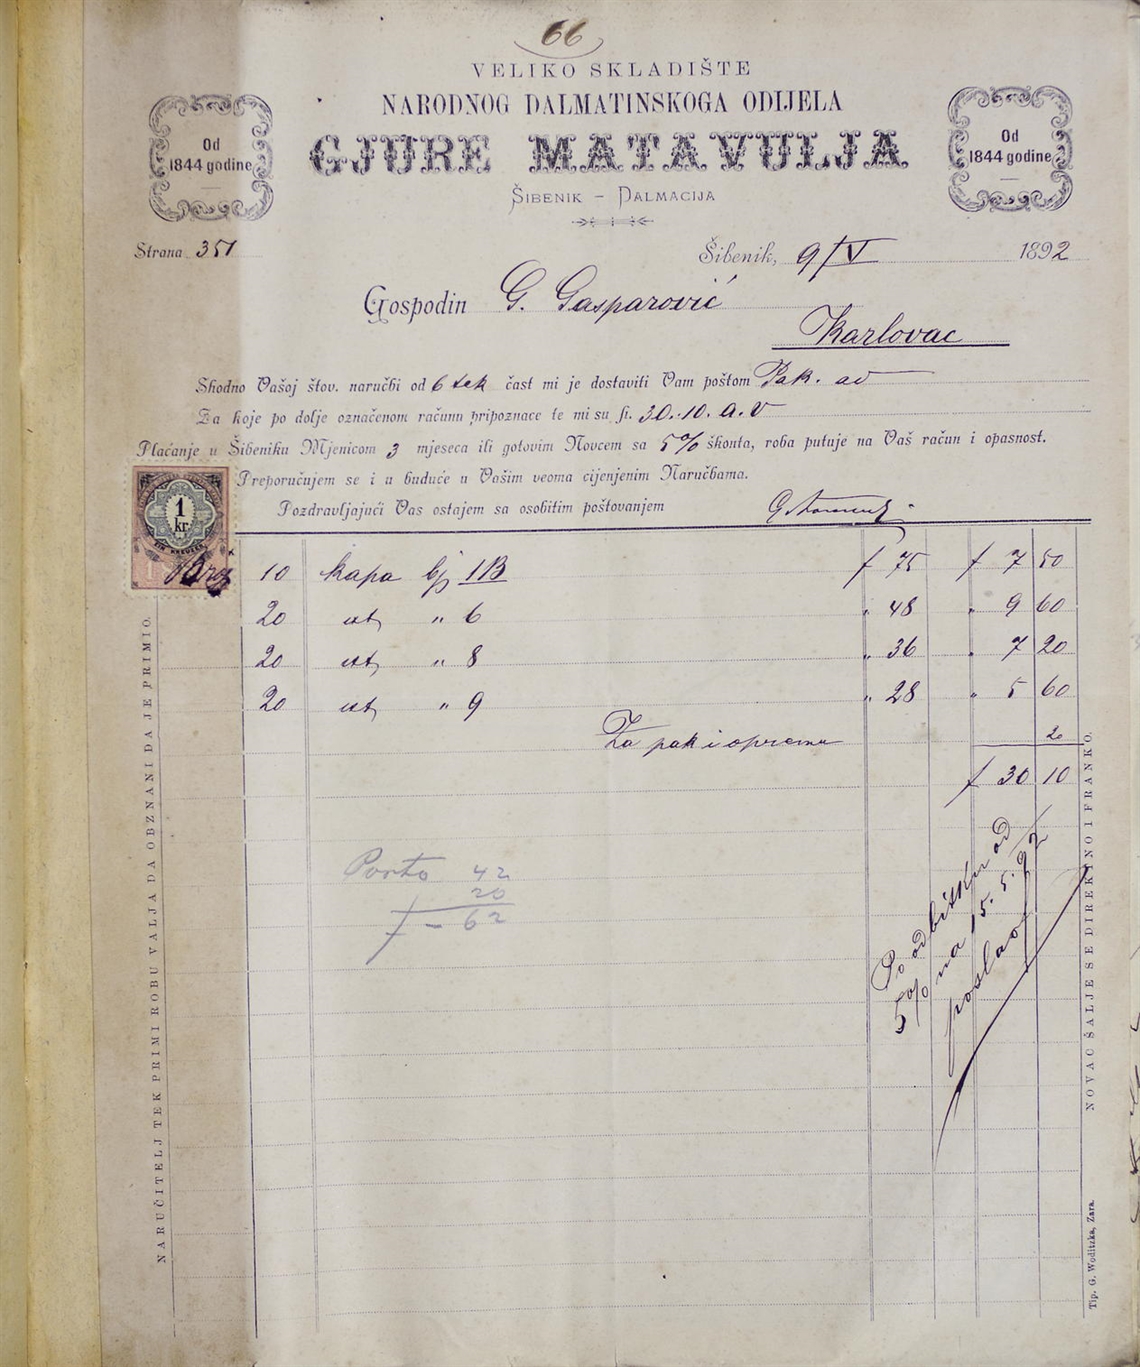 66
VELIKO SKLADIŠTE
NARODNOG DALMATINSKOGA ODIJELA
GJURE MATAVULJA
ŠIBENIK – DALMACIJA
Od
1844 godine
Od
1844 godine
Strana 351
Šibenik, 9/V 1892
Gospodin G. Gasparović
Karlovac
Shodno Vašoj štov. naručbi od 6 tek čast mi je dostaviti Vam poštom Pak. ad
Za koje po dolje označenom računu pripoznace te mi su fi. 30.10. a.v
Plaćanje u Šibeniku Mjenicom 3 mjeseca ili gotovim Novcem sa 5% škonta, roba putuje na Vaš račun i opasnost.
Preporučujem se i u buduće u Vašim veoma cijenjenim Naručbama.
Pozdravljajući Vas ostajem sa osobitim poštovanjem
1
kr.
EIN KREUZER
10 kapa bj 1B f 75 f 7 50
20 " 6 " 48 " 9 60
20 " 8 " 36 " 7 20
20 " 9 " 28 " 5 60
Za pak i opremu 20
f 30 10
Porto 42
20
f – 62
Po odbitku od
5% na 15.5.92
poslao
NARUČITELJ TEK PRIMI ROBU VALJA DA OBZNANI DA JE PRIMIO.
NOVAC ŠALJE SE DIREKTNO I FRANKO.
Tip. G. Woditzka, Zara.